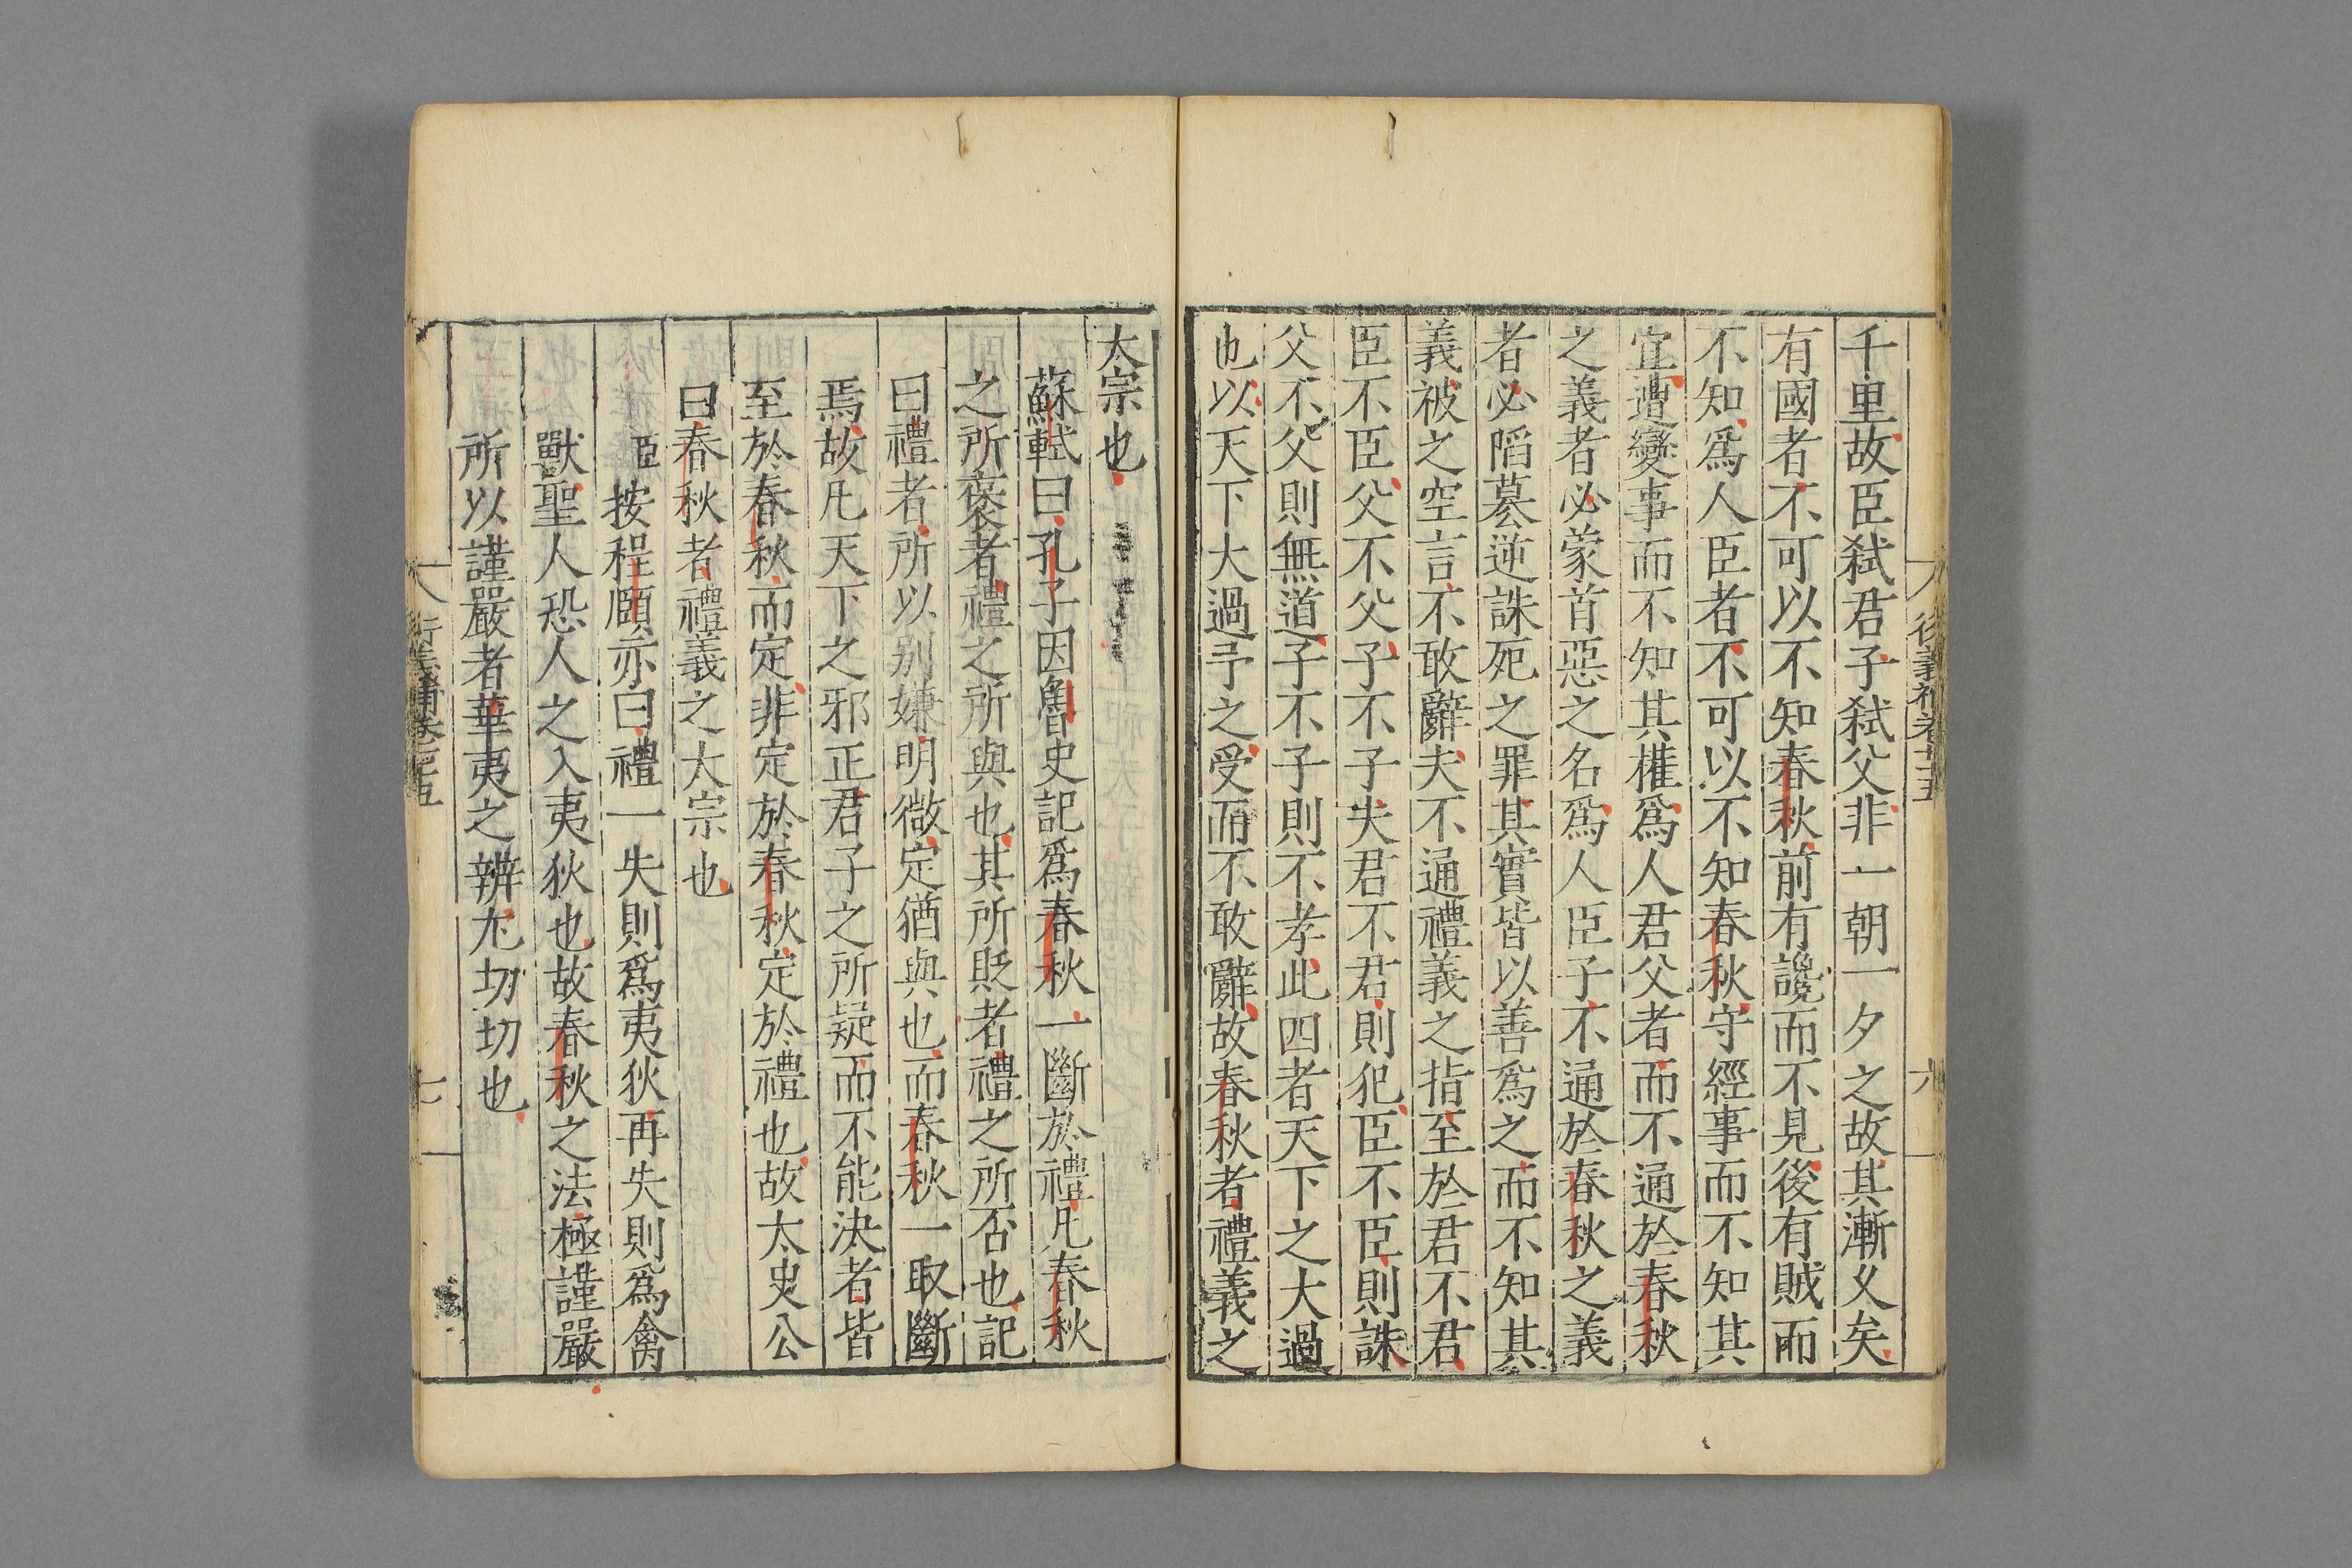 千里故臣弑君子弑父非一朝一夕之故其漸乆矣
有國者不可以不知春秋前有讒而不見後有賊而
不知爲人臣者不可以不知春秋守經事而不知其
宜遭變事而不知其權爲人君父者而不通於春秋
之義者必蒙首惡之名爲人臣子不通於春秋之義
者必䧟簒逆誅死之罪其實皆以善爲之而不知其
義被之空言不敢辭夫不通禮義之指至於君不君
臣不臣父不父子不子夫君不君則犯臣不臣則誅
父不父則無道子不子則不孝此四者天下之大過
也以天下大過予之受而不敢辭故春秋者禮義之
太宗也
蘇軾曰孔子因魯史記爲春秋一斷於禮凡春秋
之所褒者禮之所與也其所貶者禮之所否也記
曰禮者所以别嫌明微定猶與也而春秋一取斷
焉故凡天下之邪正君子之所疑而不能決者皆
至於春秋而定非定於春秋定於禮也故太史公
曰春秋者禮義之太宗也
臣按程頤亦曰禮一失則爲夷狄再失則爲禽
獸聖人恐人之入夷狄也故春秋之法極謹嚴
所以謹嚴者華夷之辨尤切切也